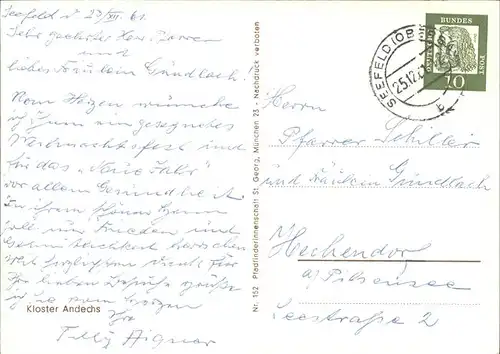 Seefeld d. 23/XII. 61.
Sehr geehrter Herr Pfarrer
und
liebes Fräulein Gündlach!
Vom Herzen wünsche
ich Ihnen ein gesegnetes
Weihnachtsfest und
für das "Neue Jahr"
vor allem Gesundheit.
In ihrem schönen Hause
soll nur Frieden und
Gemütlichkeit herrschen
Für
Ihre lieben Besuche
Ihre
Aigner
Kloster Andechs
Nr. 152 Pfadfinderinnenschaft St. Georg, München 23 - Nachdruck verboten
SEEFELD (OB
25.12.61
b
DEUTSCHE
BUNDES
POST
10
Herrn
Pfarrer Schiller
und Fräulein Gündlach
Hechendorf
a/ Pilsensee
Seestraße 2